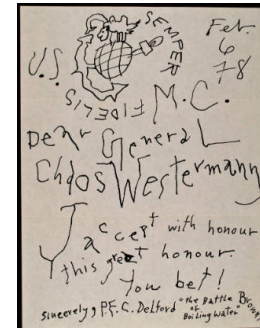 SEMPER
Feb.
6
78
U.S.
FIDELIS
M.C.
Dear General
Chaos Westermann
I accept with honour
this great honour.
You bet!
Sincerely, P.F.C. Delford "the Battle of Boiling Water" Brown